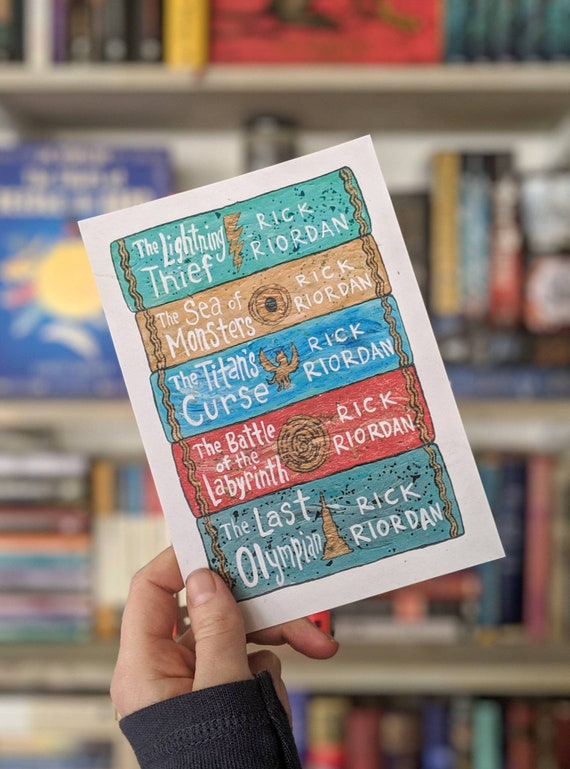 The Lightning
Thief
RICK
RIORDAN
The Sea of
Monsters
RICK
RIORDAN
The Titan's
Curse
RICK
RIORDAN
The Battle
of the
Labyrinth
RICK
RIORDAN
The Last
Olympian
RICK
RIORDAN